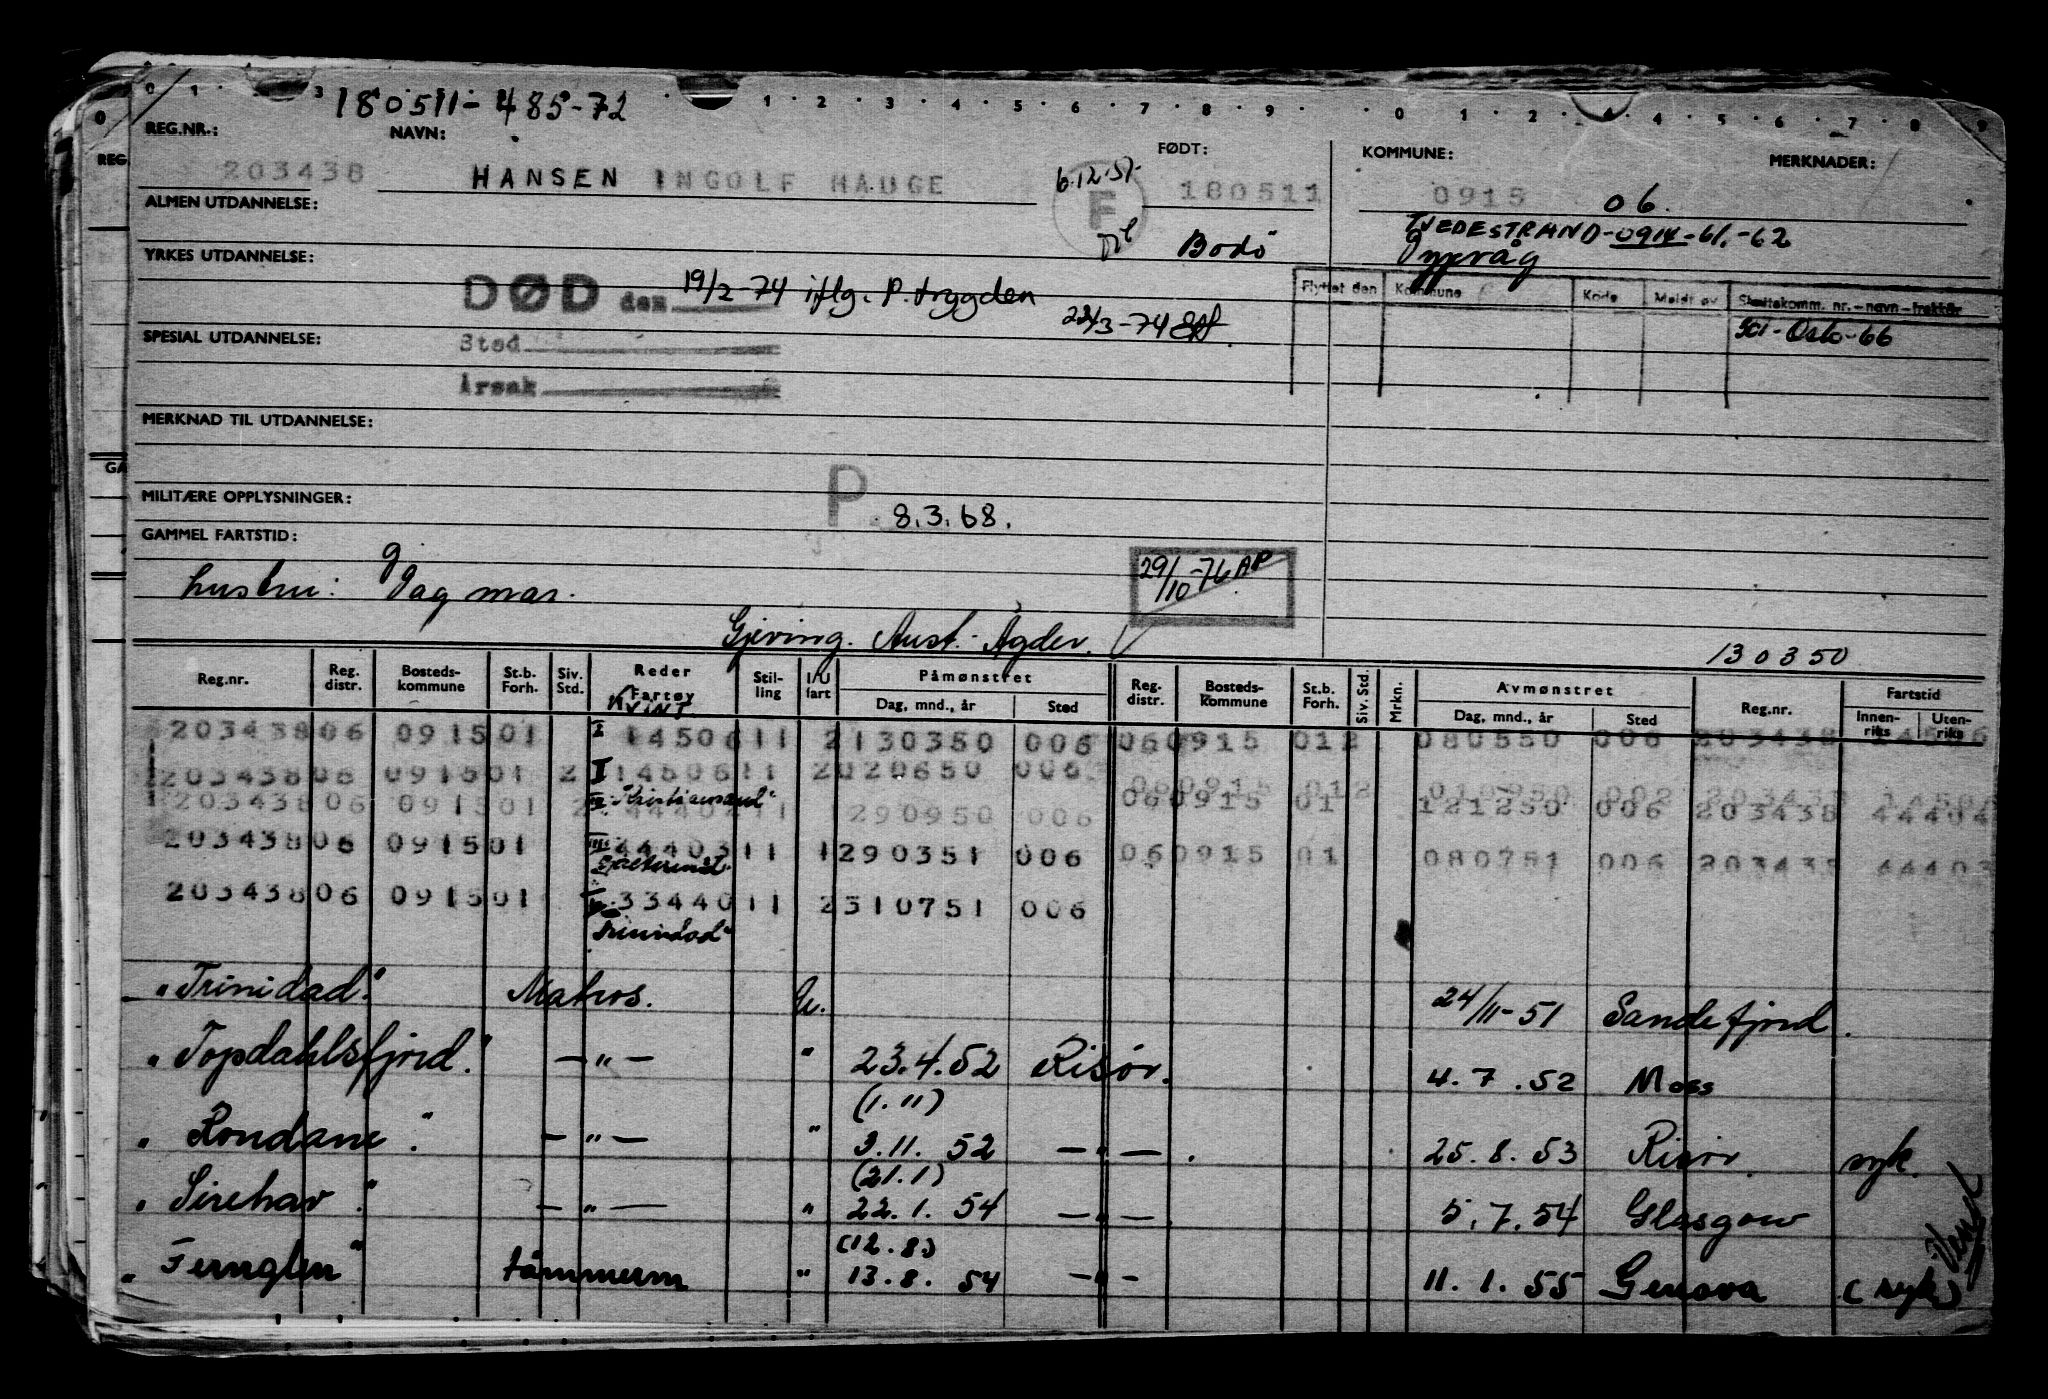 180511-485-72
REG.NR.:
NAVN:
FØDT:
KOMMUNE:
MERKNADER:
REG.
203438
HANSEN INGOLF HAUGE
6.12.51.
F
180511
0915
06.
ALMEN UTDANNELSE:
TVEDESTRAND-0914-61.-62
Bodö
YRKES UTDANNELSE:
DØD den 19/2-74 iflg. P. trygden
22/3-74
Flyttet den Kommune Kode Meldt av Skattekomm. nr.-navn-trektår
301-Oslo-66
Sted
SPESIAL UTDANNELSE:
Årsak
MERKNAD TIL UTDANNELSE:
MILITÆRE OPPLYSNINGER:
P. 8.3.68.
GAMMEL FARTSTID:
29/10-76 AP
hustru: Dagmar.
Gjeving. Aust-Agder.
130350
Reg.nr. Reg. distr. Bosteds-kommune St.b. Forh. Siv. Std. Reder Fartøy Stil-ling I/U fart Påmønstret Dag, mnd., år Sted Reg. distr. Bosteds-kommune St.b. Forh. Siv. Std. Mrkn. Avmønstret Dag, mnd., år Sted Reg.nr. Fartstid Innen-riks Uten-riks
VINT
203438 06 0915 01 I 1450611 2 130350 006 06 0915 01 2 080550 006 203438
203438 06 0915 01 2 II 1450611 2 020650 006 06 0915 01 2 203438
"Kristiansand"
203438 06 0915 01 2 4440211 290950 006 06 0915 01 121250 006 203438 44404
203438 06 0915 01 III 4440311 1 290351 006 06 0915 01 080751 006 203438 44403
203438 06 0915 01 3344011 2 310751 006
"Trinidad"
"Trinidad" Matros. U. 24/11-51 Sandefjord.
"Topdahlsfjord." — " — " 23.4.52 Risör. 4.7.52 Moss
(1.11)
"Rondane." — " — " 3.11.52 — " — . 25.8.53 Risör. syk.
(21.1)
"Sirehav." — " — " 22.1.54 — " — 5.7.54 Glasgow
(12.8.)
"Fernglen" tömmerm " 13.8.54 — " — 11.1.55 Genova (syk)
Vend